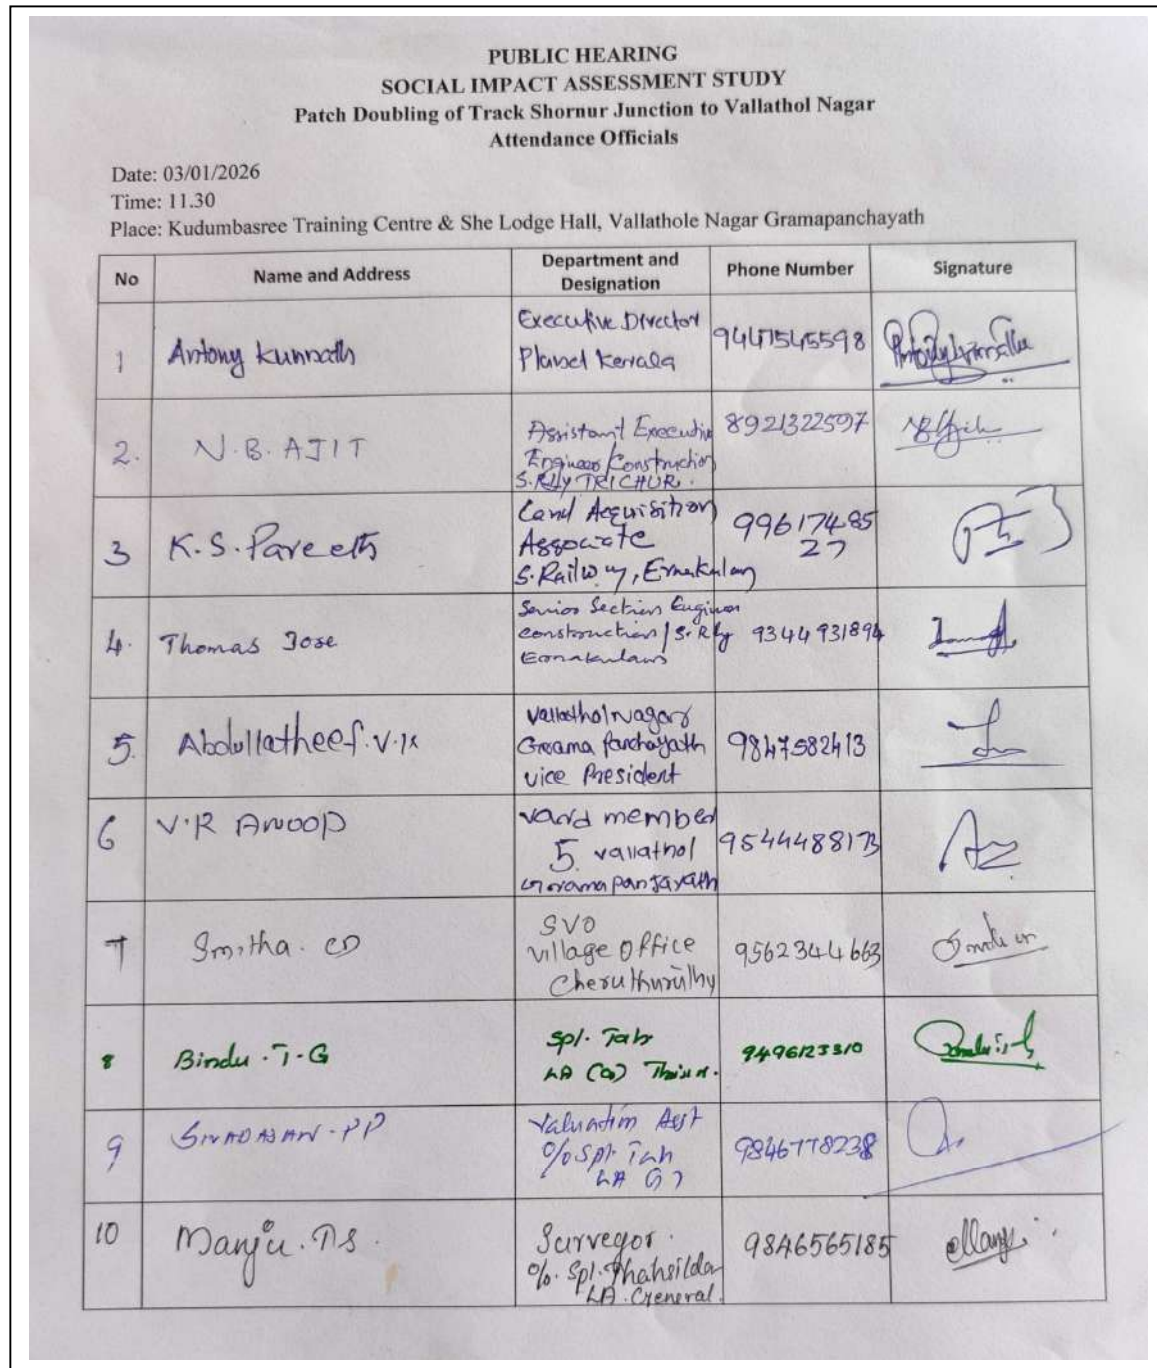 PUBLIC HEARING
SOCIAL IMPACT ASSESSMENT STUDY
Patch Doubling of Track Shornur Junction to Vallathol Nagar
Attendance Officials
Date: 03/01/2026
Time: 11.30
Place: Kudumbasree Training Centre & She Lodge Hall, Vallathole Nagar Gramapanchayath
No Name and Address Department and Designation Phone Number Signature
1 Antony Kunnath
Executive Director
Planet Kerala
9447545598
2. N.B. AJIT
Assistant Executive
Engineer/Construction
S.Rly TRICHUR.
8921322597
3 K.S. Pareeth
Land Acquisition
Associate
S.Railway, Ernakulam
99617485
27
4. Thomas Jose
Senior Section Engineer
construction/S.Rly
Ernakulam
9344931894
5. Abdullatheef.V.K
Vallathol nagar
Grama Panchayath
vice President
9847582413
6 V.R ANOOP
ward member
5 vallathol
Gramapanjayath
9544488173
7 Smitha. CD
SVO
village office
Cheruthuruthy
9562344663
8 Bindu.T-G
Spl. Tah
LA (G) Thrissur.
9496123310
9 SIVADASAN-PP
Valuation Asst
O/o Spl Tah
LA G)
9846778238
10 Manju.
Surveyor.
O/o. Spl.Thahsildar
LA.General.
9846565185